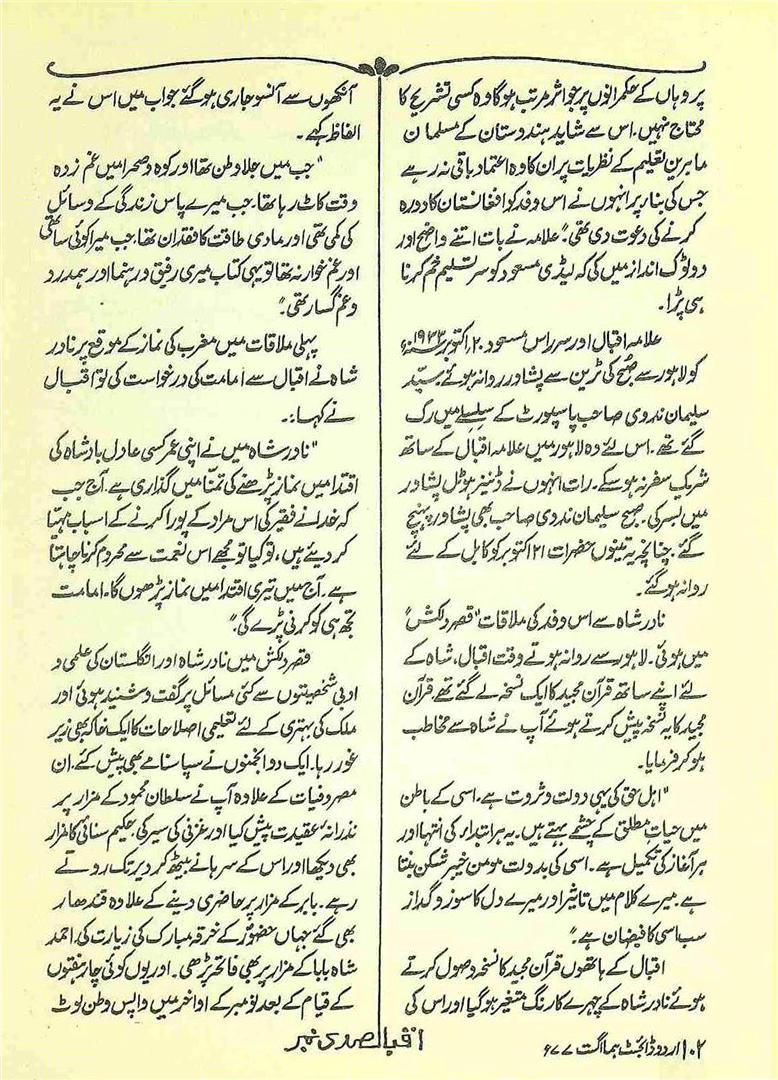 پر وہاں کے حکمرانوں پر جو اثر مرتب ہوگا وہ کسی تشریح کا
محتاج نہیں۔ اس سے شاید ہندوستان کے مسلمان
ماہرین تعلیم کے نظریات پر ان کا وہ اعتماد باقی نہ رہے
جس کی بنا پر انہوں نے اس وفد کو افغانستان کا دورہ
کرنے کی دعوت دی تھی۔" علامہ نے بات اتنے واضح اور
دو ٹوک انداز میں کی کہ لیڈی مسعود کو سر تسلیم خم کرنا
ہی پڑا۔
علامہ اقبال اور سر راس مسعود ۲۰ اکتوبر ۱۹۳۳ء
کو لاہور سے صبح کی ٹرین سے پشاور روانہ ہوئے۔ سید
سلیمان ندوی صاحب پاسپورٹ کے سلسلے میں رک
گئے تھے۔ اس لئے وہ لاہور میں علامہ اقبال کے ساتھ
شریک سفر نہ ہو سکے۔ رات انہوں نے ڈینز ہوٹل پشاور
میں بسر کی۔ صبح سلیمان ندوی صاحب بھی پشاور پہنچ
گئے۔ چنانچہ یہ تینوں حضرات ۲۱ اکتوبر کو کابل کے لئے
روانہ ہو گئے۔
نادر شاہ سے اس وفد کی ملاقات "قصر دلکش"
میں ہوئی۔ لاہور سے روانہ ہوتے وقت اقبال، شاہ کے
لئے اپنے ساتھ قرآن مجید کا ایک نسخہ لے گئے تھے۔ قرآن
مجید کا یہ نسخہ پیش کرتے ہوئے آپ نے شاہ سے مخاطب
ہو کر فرمایا۔
"اہل حق کی یہی دولت و ثروت ہے۔ اسی کے باطن
میں حیات مطلق کے چشمے بہتے ہیں۔ یہ ہر ابتدا کی انتہا اور
ہر آغاز کی تکمیل ہے۔ اسی کی بدولت مومن خیبر شکن بنتا
ہے۔ میرے کلام میں تاثیر اور میرے دل کا سوز و گداز
سب اسی کا فیضان ہے۔"
اقبال کے ہاتھوں قرآن مجید کا نسخہ وصول کرتے
ہوئے نادر شاہ کے چہرے کا رنگ متغیر ہو گیا اور اس کی
آنکھوں سے آنسو جاری ہو گئے جواب میں اس نے یہ
الفاظ کہے۔
"جب میں جلا وطن تھا اور کوہ و صحرا میں غم زدہ
وقت کاٹ رہا تھا۔ جب میرے پاس زندگی کے وسائل
کی کمی تھی اور مادی طاقت کا فقدان تھا۔ جب میرا کوئی ساتھی
اور غم خوار نہ تھا تو یہی کتاب میری رفیق و رہنما اور ہمدرد
و غم گسار تھی۔"
پہلی ملاقات میں مغرب کی نماز کے موقع پر نادر
شاہ نے اقبال سے امامت کی درخواست کی تو اقبال
نے کہا:۔
"نادر شاہ میں نے اپنی عمر کسی عادل بادشاہ کی
اقتدا میں نماز پڑھنے کی تمنا میں گذاری ہے۔ آج جب
کہ خدا نے فقیر کی اس مراد کے پورا کرنے کے اسباب مہیا
کر دیئے ہیں، تو کیا تو مجھے اس نعمت سے محروم کرنا چاہتا
ہے۔ آج میں تیری اقتدا میں نماز پڑھوں گا۔ امامت
تجھ ہی کو کرنی پڑے گی۔"
قصر دلکش میں نادر شاہ اور انگلستان کی علمی و
ادبی شخصیتوں سے کئی مسائل پر گفت و شنید ہوئی اور
ملک کی بہتری کے لئے تعلیمی اصلاحات کا ایک خاکہ بھی زیر
غور رہا۔ ایک دو انجمنوں نے سپاسنامے بھی پیش کئے۔ ان
مصروفیات کے علاوہ آپ نے سلطان محمود کے مزار پر
نذرانۂ عقیدت پیش کیا اور غزنی کی سیر کی۔ حکیم سنائی کا مزار
بھی دیکھا اور اس کے سرہانے بیٹھ کر دیر تک روتے
رہے۔ بابر کے مزار پر حاضری دینے کے علاوہ قندھار
بھی گئے جہاں حضورؐ کے خرقہ مبارک کی زیارت کی۔ احمد
شاہ بابا کے مزار پر بھی فاتحہ پڑھی۔ اور یوں کوئی چار ہفتوں
کے قیام کے بعد نومبر کے اواخر میں واپس وطن لوٹ
۱۰۲ اردو ڈائجسٹ ہما اگست ۷۷ء
اقبال صدی نمبر